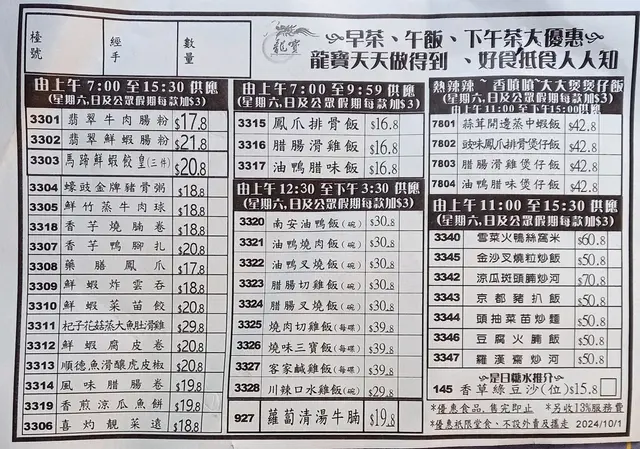 檯號
經手
數量
龍寶
~早茶、午飯、下午茶大優惠~
龍寶天天做得到、好食抵食人人知
由上午7:00至15:30供應
(星期六,日及公眾假期每款加$3)
3301 翡翠牛肉腸粉 $17.8
3302 翡翠鮮蝦腸粉 $21.8
3303 馬蹄鮮蝦餃皇(三件) $20.8
3304 蠔豉金牌豬骨粥 $18.8
3305 鮮竹蒸牛肉球 $18.8
3318 香芋燒腩卷 $18.8
3307 香芋鴨腳扎 $20.8
3308 藥膳鳳爪 $17.8
3309 鮮蝦炸雲吞 $18.8
3310 鮮蝦菜苗餃 $20.8
3311 杞子花菇蒸大魚肚滑雞 $29.8
3312 鮮蝦腐皮卷 $20.8
3313 順德魚滑釀虎皮椒 $20.8
3314 風味腊腸卷 $19.8
3319 香煎涼瓜魚餅 $19.8
3306 喜灼靚菜遠 $18.8
由上午7:00至9:59供應
(星期六,日及公眾假期每款加$3)
3315 鳳爪排骨飯 $16.8
3316 腊腸滑雞飯 $16.8
3317 油鴨腊味飯 $16.8
由上午12:30至下午3:30供應
(星期六,日及公眾假期每款加$3)
3320 南安油鴨飯(碗) $30.8
3321 油鴨燒肉飯(碗) $30.8
3322 油鴨叉燒飯(碗) $30.8
3323 腊腸切雞飯(碗) $30.8
3324 腊腸叉燒飯(碗) $30.8
3325 燒肉切雞飯(每碟) $39.8
3326 燒味三寶飯(每碟) $39.8
3327 客家鹹雞飯(每碟) $39.8
3328 川辣口水雞飯(碗) $29.8
927 蘿蔔清湯牛腩 $19.8
熱辣辣~香噴噴~大大煲煲仔飯
由上午11:00至下午15:00供應
(星期六,日及公眾假期每款加$3)
7801 蒜茸開邊蒸中蝦飯 $42.8
7802 豉味鳳爪排骨煲仔飯 $42.8
7803 腊腸滑雞煲仔飯 $42.8
7804 油鴨腊味煲仔飯 $42.8
由上午11:00至15:30供應
(星期六,日及公眾假期每款加$3)
3340 雪菜火鴨絲窩米 $60.8
3345 金沙叉燒粒炒飯 $50.8
3342 涼瓜斑頭腩炒河 $70.8
3343 京都豬扒飯 $50.8
3344 頭抽菜苗炒麵 $50.8
3346 豆腐火腩飯 $50.8
3347 羅漢齋炒河 $50.8
~是日糖水推介~
145 香草綠豆沙(位) $15.8
*優惠食品,售完即止 *另收13%服務費
*優惠祇限堂食、不設外賣及攜走 2024/10/1